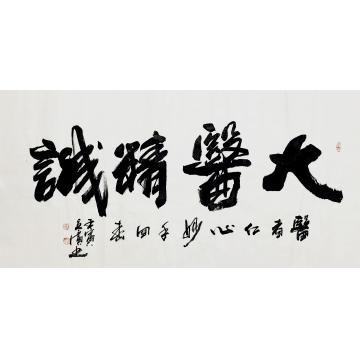 大醫精誠
醫者仁心妙手回春
壬寅